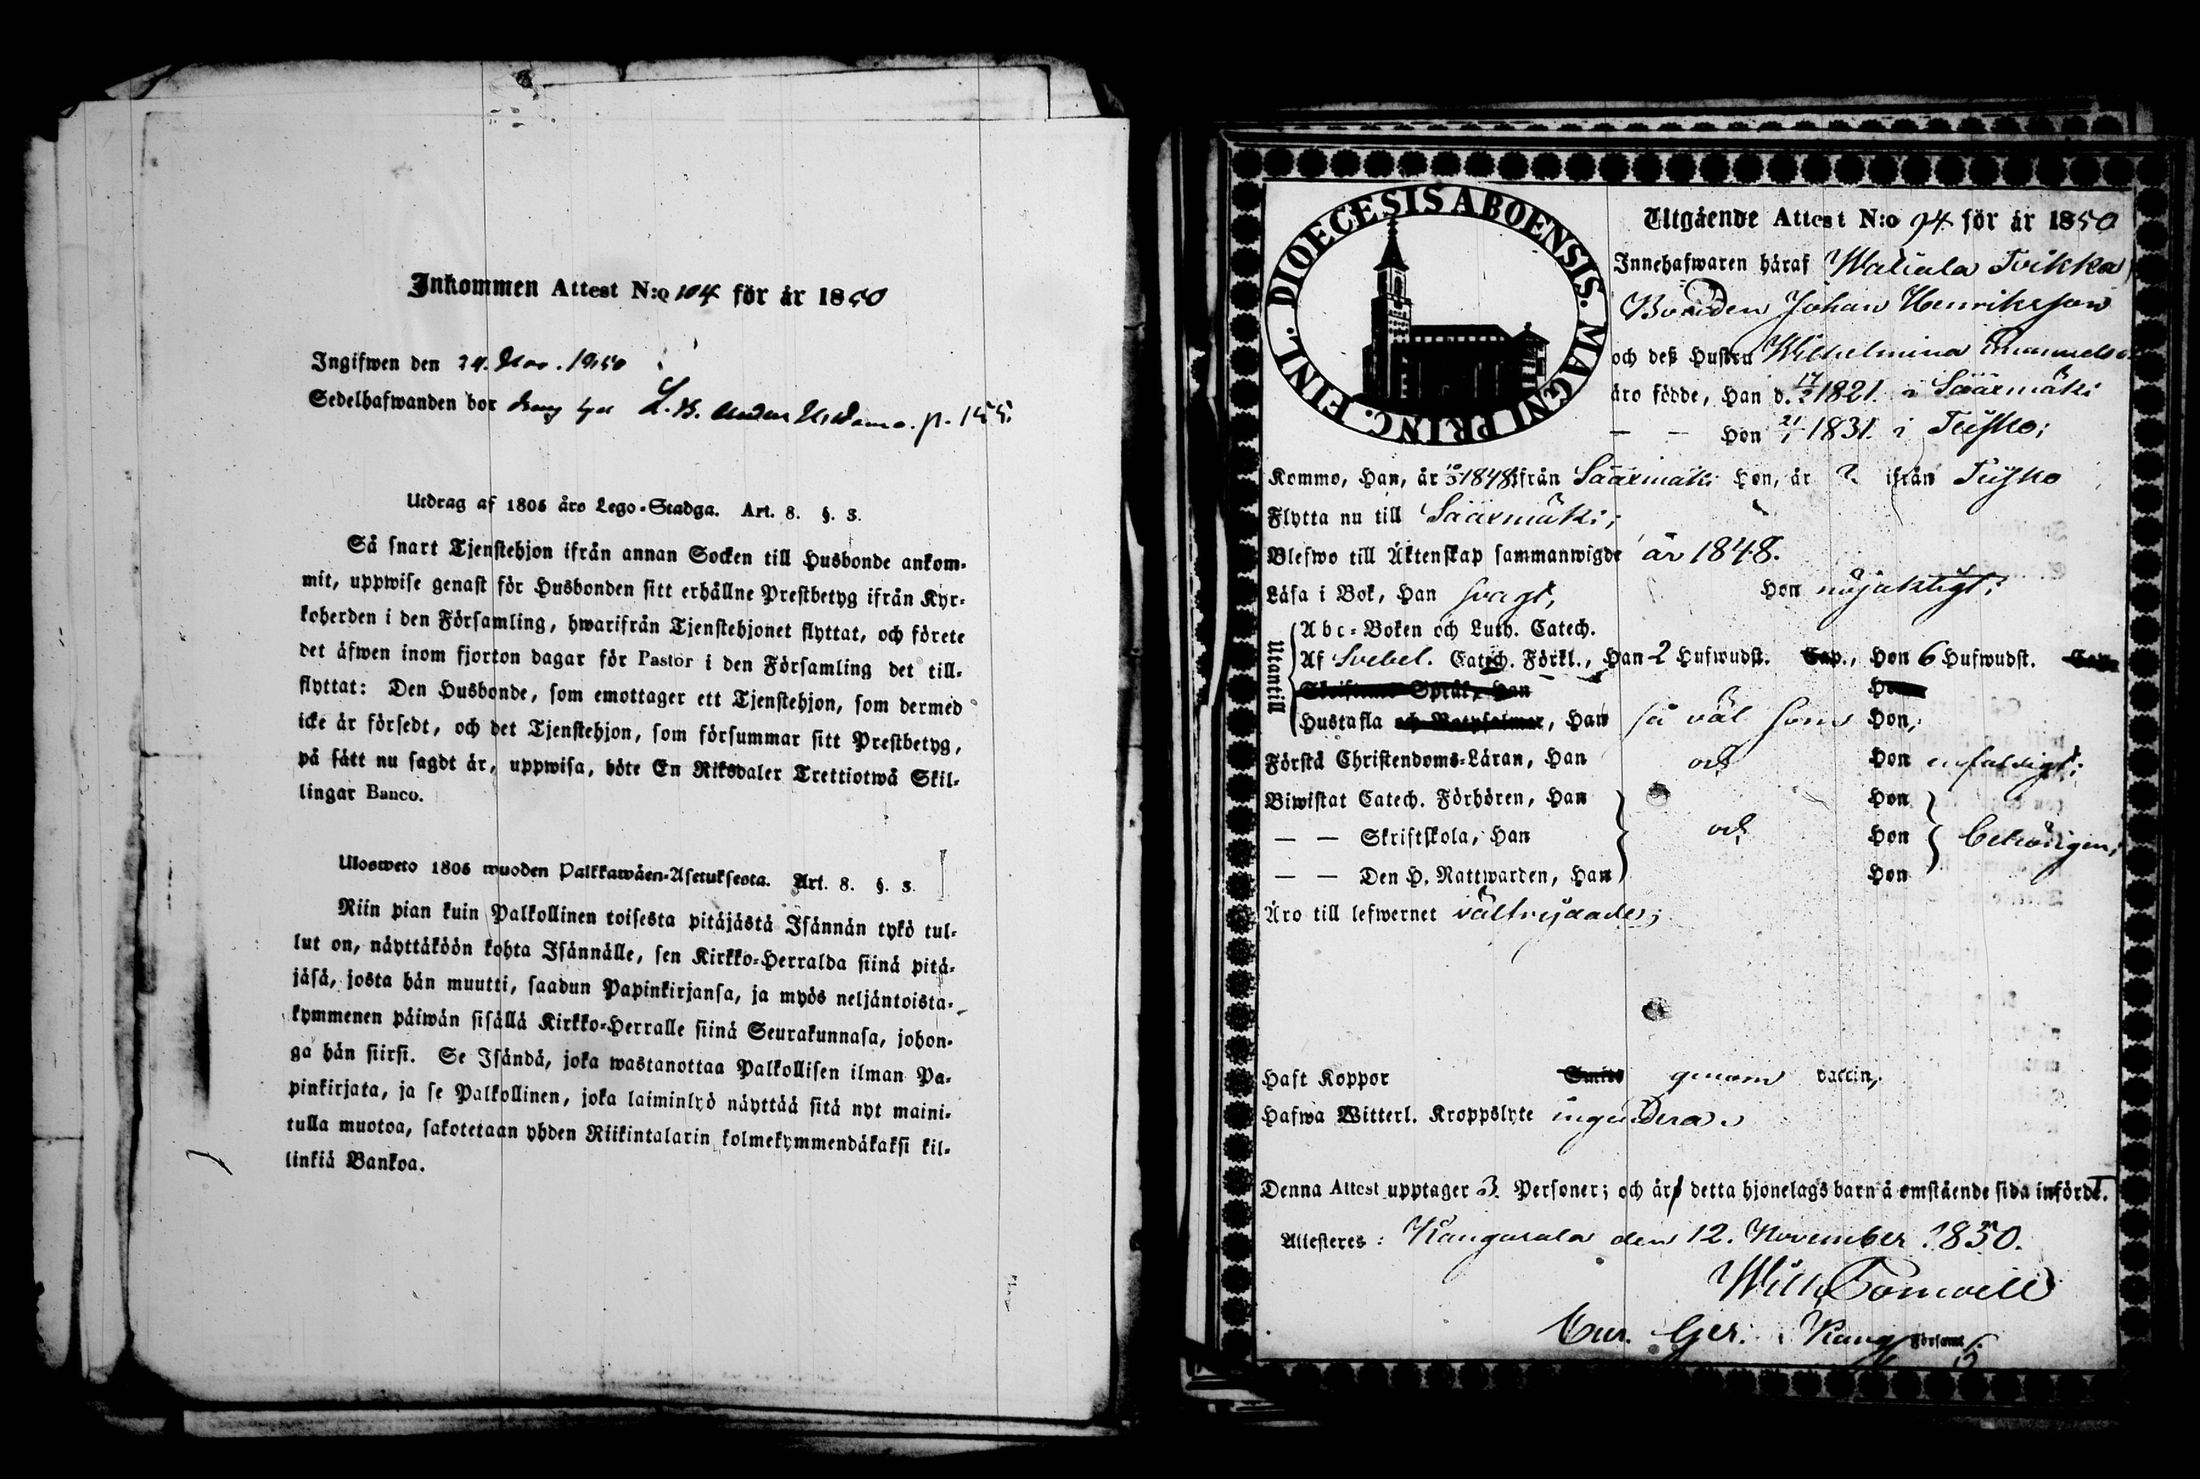 Inkommen Attest N:o 104 för år 1850
Ingifwen den 24. Nov. 1850
Sedelhafwanden bor L. B. p. 155.
Utdrag af 1805 års Lego-Stadga. Art. 8. §. 3.
Så snart Tjenstehjon ifrån annan Socken till Husbonde ankom-
mit, uppwise genast för Husbonden sitt erhållne Prestbetyg ifrån Kyr-
koherden i den Församling, hwarifrån Tjenstehjonet flyttat, och förete
det äfwen inom fjorton dagar för Pastor i den Församling det till-
flyttat: Den Husbonde, som emottager ett Tjenstehjon, som dermed
icke är försedt, och det Tjenstehjon, som försummar sitt Prestbetyg,
på sätt nu sagdt är, uppwisa, böte En Riksdaler Trettiotwå Skil-
lingar Banco.
Ulosweto 1805 wuoden Palkkawäen-Asetuksesta. Art. 8. §. 3.
Niin pian kuin Palkollinen toisesta pitäjästä Isännän tykö tul-
lut on, näyttäköön kohta Isännälle, sen Kirkko-Herralda siinä pitä-
jäsä, josta hän muutti, saadun Papinkirjansa, ja myös neljäntoista-
kymmenen päiwän sisällä Kirkko-Herralle siinä Seurakunnasa, johon-
ga hän siirsi. Se Isändä, joka wastanottaa Palkollisen ilman Pa-
pinkirjata, ja se Palkollinen, joka laiminlyö näyttää sitä nyt maini-
tulla muotoa, sakotetaan yhden Riikintalarin kolmekymmendäkaksi kil-
linkiä Bankoa.
FINL. DIOECESIS ABOENSIS. MAGNI PRINC.
Utgående Attest N:o 94 för år 1850
Innehafwaren häraf Waliala Tvikka
Bonden Johan Henriksson
och deß Hustru Wilhelmina
äro födde, Han d. 17 1821. i Säärmäki
— — Hon 21/1 1831. i Teisko;
Kommo, Han, år 1848 ifrån Säärmäki Hon, år ? ifrån Teisko
Flytta nu till Säärmäki;
Blefwo till Äktenskap sammanwigde år 1848.
Läsa i Bok, Han svagt, Hon nöjaktigt;
Utantill
Abc-Boken och Luth. Catech.
Af Svebel. Catech. Förkl., Han 2 Hufwudst. Cap., Hon 6 Hufwudst. Cap.
Skriftenes Språk, Han Hon
Hustafla och Botpsalmer, Han så väl som Hon;
Förstå Christendoms-Läran, Han och Hon enfaldigt;
Biwistat Catech. Förhören, Han Hon
— — Skriftskola, Han och Hon behörigen;
— — Den H. Nattwarden, Han Hon
Äro till lefwernet välfrejdade;
Haft Koppor genom vaccin,
Hafwa Witterl. Kroppslyte ingendera.
Denna Attest upptager 3. Personer; och är detta hjonelags barn å omstående sida infördt.
Attesteres: Kangasala den 12. November 1850.
Wilh.
Cur. Ger. i Kang. Församl.